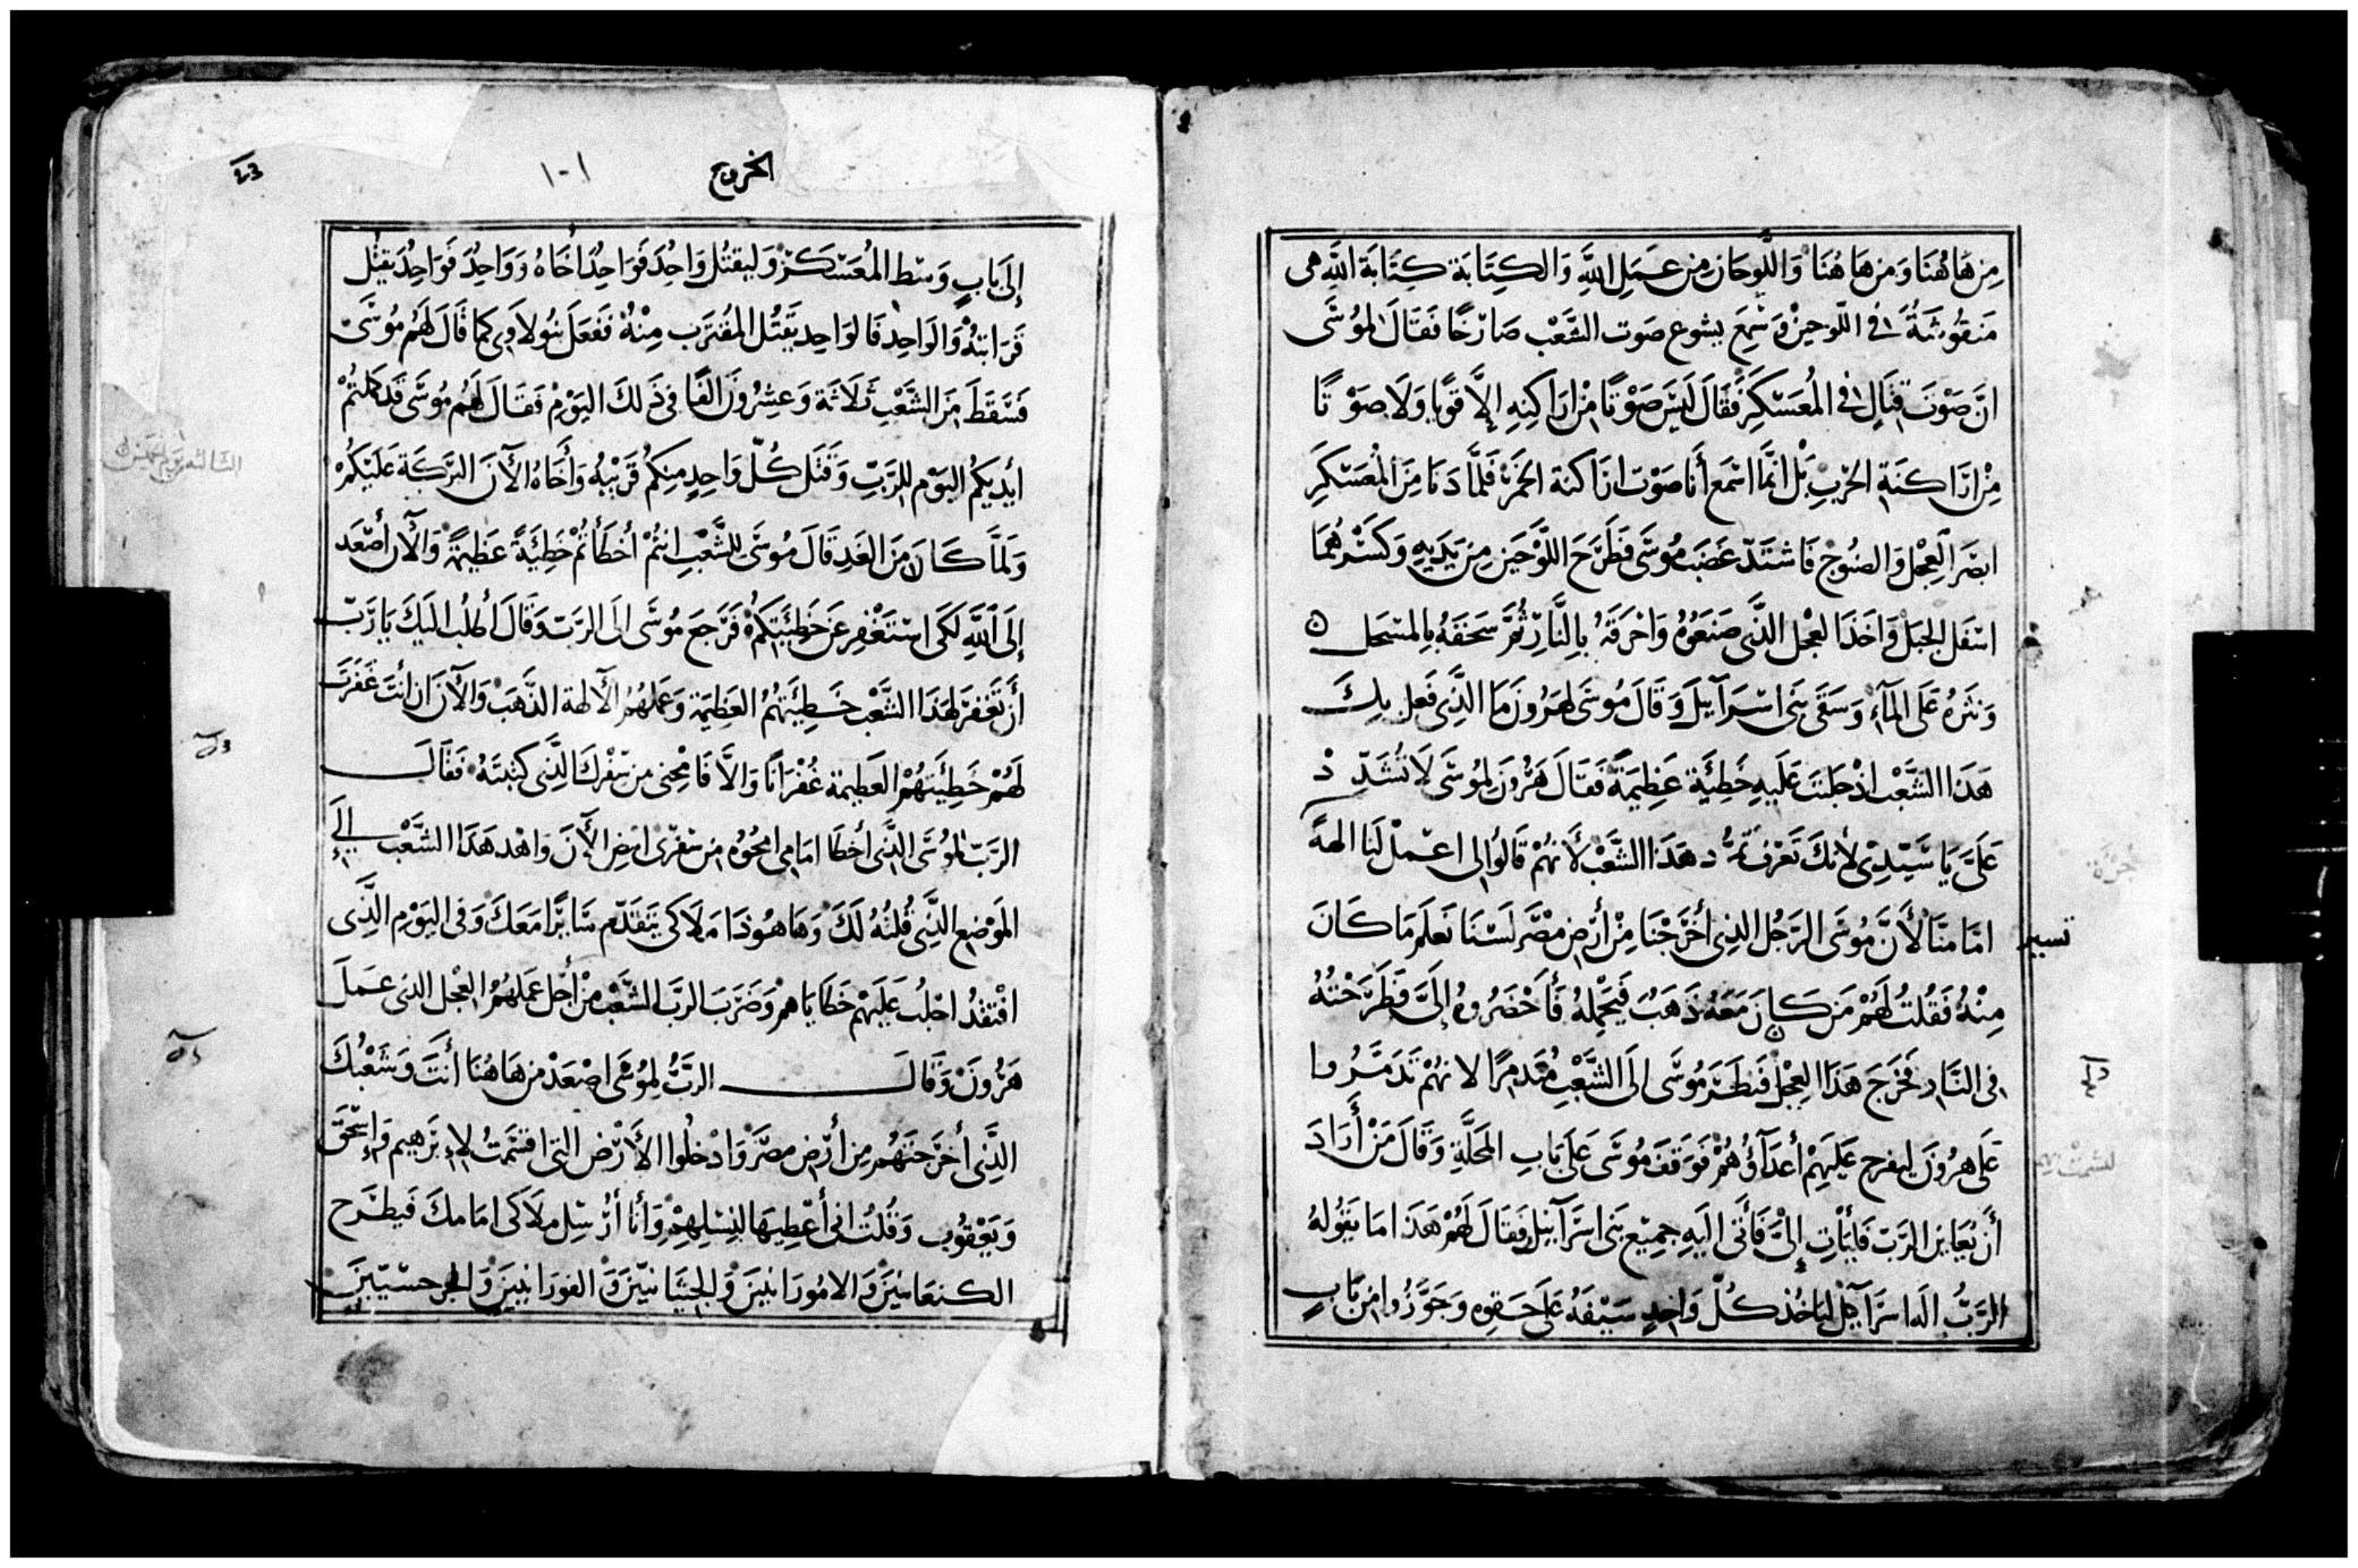 مِن هَاهُنَا وَمِن هَاهُنَا وَاللَّوحَان مِن عَمَلِ اللَّهِ وَالكِتَابَة كِتَابَة اللَّهِ هى
مَنقُوشَةً فى اللّوحين وَسَمِعَ يشوع صَوت الشَّعْب صَارخًا فَقَالَ لمُوسَى
انَّ صَوْتَ قتَالٍ فى المُعَسْكَر فَقَالَ لَيْسَ صَوْتًا مِنْ ارَاكنهِ إلاَّ قوّيا وَلَا صَوْتًا
مِنْ ارَاكِنَةِ الحَرْبِ بَل انَّما اسْمَع أَنَا صَوْت ارَاكنة الخَمْر فَلَمَّا دَنَا مِنَ المُعَسْكَرِ
ابصَرَ العِجْل وَالصنُوج فَاشتَدّ غَضَب مُوسَى فَطَرَحَ اللَّوْحَين مِن يَدَيهِ وَكَسَّرهُمَا
اسْفَل الجَبَل وَاخَذَ العجْل الَّذى صَنَعُوهُ وَاحرَقَهُ بِالنَّارِ ثُمَّ سَحَقَهُ بِالمسْحَل
وَنثَرهُ عَلَى المآء وَسَقَى بَنى اسْرَآئيلَ وَقَالَ مُوسَى لهَرُونَ مَا الَّذِى فَعل بك
هَذَا الشَّعْب اذْ جَلبتَ عَلَيهِ خَطِئَيةً عَظِيمَةً فَقَالَ هَرُونَ لِمُوسَى لَا تُشَدّدْ
عَلَىَّ يَا سَيّدِى لأَنكَ تَعْرف تمرُّد هَذَا الشَّعْب لأَنهُمْ قَالُوا لى اعْمل لَنَا الهةً
امَامنَا لأَنَّ مُوسَى الرّجُل الذِى أَخْرَجْنَا مِنْ أَرْضِ مصْرَ لَسْنَا نَعلَم مَا كَانَ
تسير
مِنْهُ فَقُلتُ لَهُمْ مَن كَانَ مَعَهُ ذَهَبٌ فَيحْملهُ فَأَحْضَرُوهُ إلَىَّ فَطَرَحْتُهُ
فى النَّار فَخَرَجَ هَذَا العِجْل فَنظَرَ مُوسَى الَى الشَّعْب مُتَدمّرًا لانهُمْ تَدَمَّرُوا
عَلَى هرُونَ ليفرح عَلَيهِمْ أَعْدَآؤُهُمْ فَوَقَفَ مُوسَى عَلَى بَابِ المَحَلَّةِ وَقَالَ مَنْ أَرَادَ
أَن يُعَاين الرَّبّ فَليَأتِ إلىَّ فَأَتَى الَيهِ جمِيْع بَنى اسْرَآئيل فَقَالَ لَهُمْ هَذَا مَا يَقُولهُ
الرَّبُّ الَه اسرَآئيل ليَاخُذ كُلّ وَاحِدٍ سَيْفَهُ عَلَى حَقوِهِ وَجَوّزُوا مِن بَابٍ
الخروج
١٠١
إلَى بَابٍ وَسْط المُعَسْكَر وَليقتُل وَاحِدٌ فَوَاحِدٌ اخَاهُ وَوَاحِدٌ فَوَاحِدٌ يقتُل
قَرَابتهُ وَالوَاحِد فَالوَاحِد يَقتُل المُقتَرب مِنْهُ فَفَعَلَ بَنُو لاوى كما قَالَ لَهُم مُوسَى
فَسَقَطَ مِنَ الشَّعْبِ ثَلَاثَة وَعِشرُونَ الفًا فى ذَلكَ اليَوْم فَقَالَ لَهُم مُوسَى قَد كملتُمْ
ايْدِيكُم اليَوْم لِلرَّبّ وَقَتَل كُلّ وَاحِدٍ مِنكُم قَرِيْبهُ وَأَخَاهُ الآنَ البَرَكَة عَلَيْكُمْ
وَلَمَّا كَانَ مِنَ الغَدِ قَالَ مُوسَى للشَّعْبِ انتُمْ اخْطَأْتُمْ خَطِئَيةً عَظِيمَةً وَالآن أَصْعَد
إلَى اللَّهِ لكَى اسْتَغْفِر عَن خَطِيئَتِكُمْ فَرَجَعَ مُوسَى الَى الرَّبّ وَقَالَ أَطلُب اليكَ يَا رَبّ
أَن تَغفِرَ لهَذَا الشَّعْب خَطِيئَتهُمُ العَظِيمَة وَعَملهُم الآلهة الذَّهَبْ وَالآنَ ان انتَ غَفَرتَ
لَهُمْ خَطِيئَتهُمْ العَظِيمة غُفْرَانًا وَالاَّ فَامْحِنى مِن سفْركَ الَّذى كتَبتَهُ فَقَالَ
الرَّبّ لمُوسَى الَّذى أَخطَا امَامِى امْحُوه مِن سفْرِى امْضِ الآنَ وَاهْد هَذَا الشَّعْب إلَى
المَوْضِع الَّذِى قُلتُهُ لَكَ وَهَا هُوذَا مَلاَكى يَتقَدّم سَايرًا مَعَكَ وَفى اليَوْمِ الَّذِى
افْتَقدُ اجْلُب عَلَيهْم خَطَايَاهمْ وَضَرَبَ الربّ الشَّعْب مِنْ أَجْل عَملهُمُ العجْل الذى عَمَلَ
هَرُونَ وَقَالَ الربُّ لِمُوسَى اصْعَدْ مِن هَاهُنَا أَنتَ وَشَعْبُكَ
الَّذِى أَخرَجتَهُم مِن أَرْضِ مصْرَ وَادْخُلُوا الأَرْض التى اقسَمْتُ لإِبْرَهِيم وَإسْحَقَ
وَيَعْقُوب وَقُلتُ انى أُعْطِيهَا لنَسْلِهِمْ وَأَنَا أُرْسِل مَلَاكى امَامكَ فَيطْرَح
الكنعَانيّينَ وَالامُورَانيينَ وَالحيثَانيّينَ وَالفورَانيينَ وَالجرجسْيّينَ